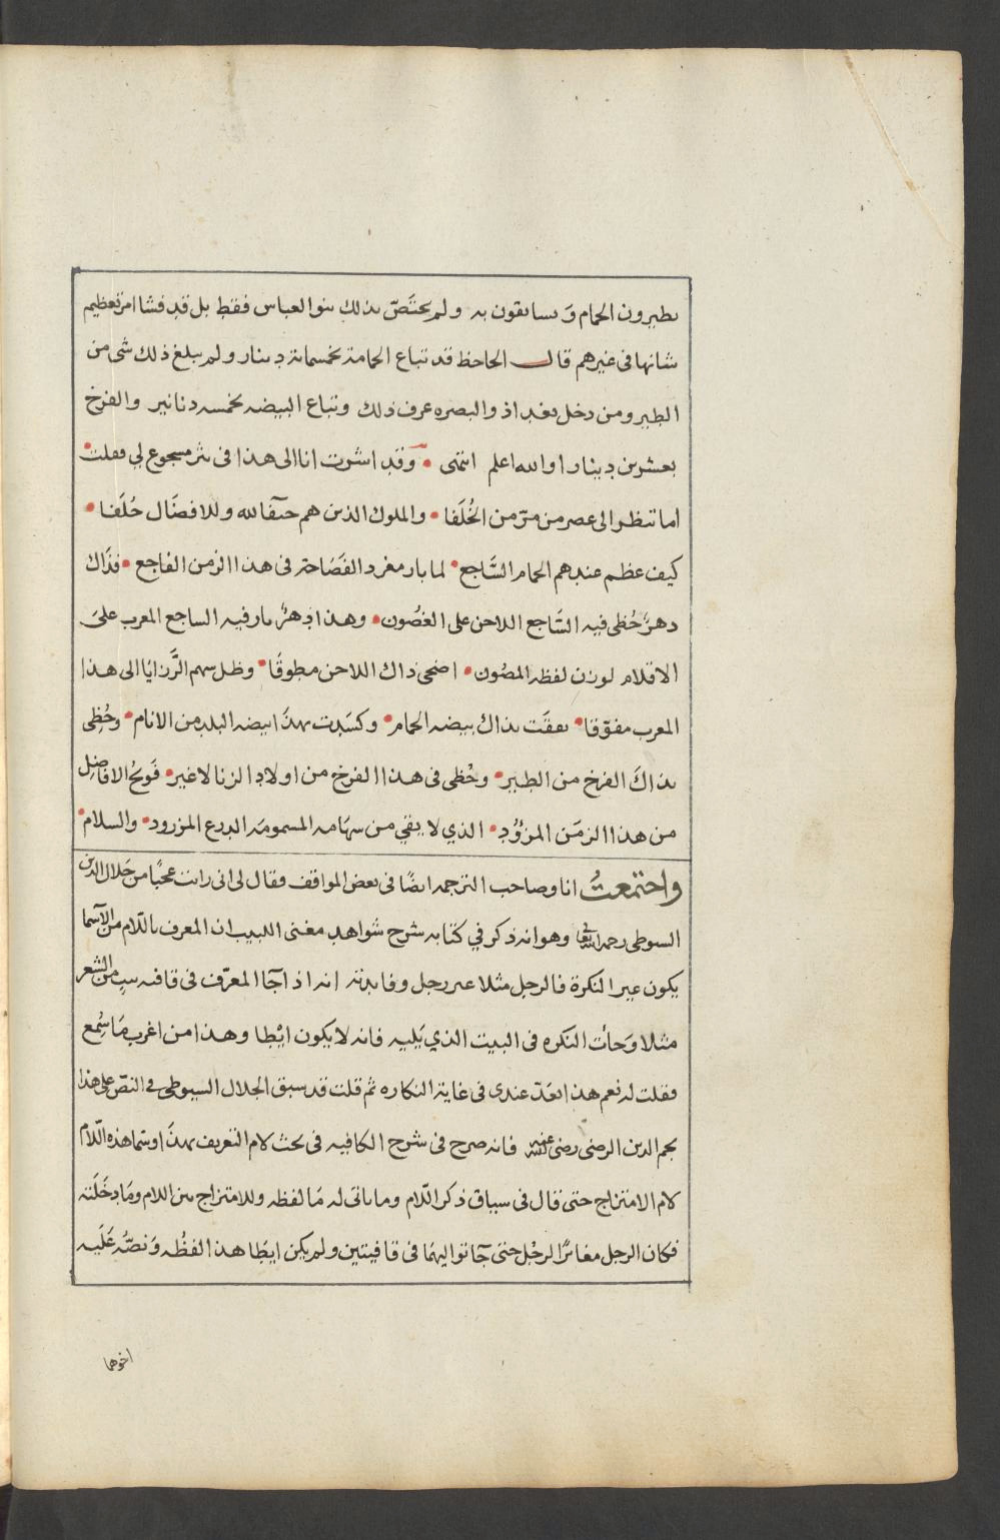 يطيرون الحمام ويسابقون به ولم يختص بذلك بنو العباس فقط بل قد فشا امر تعظيم
شانها في غيرهم قال الجاحظ قد تباع الحمامة بخمسمائة دينار ولم يبلغ ذلك شي من
الطير ومن دخل بغداذ والبصره عرف ذلك وتباع البيضه بخمسه دنانير والفرخ
بعشرين دينارا والله اعلم انتهى • وقد اشرت انا الى هذا في نثر مسجوع لي فقلت •
اما تنظر الى عصر من مرّ من الخُلَفا • والملوك الذين هم حنفا لله وللافضَال حُلَفا •
كيف عظم عندهم الحمام السَّاجع • لما بار مغرد الفَصَاحة في هذا الزمن الفاجع • فذَاك
دهرٌ حُظى فيه السَاجع اللاحن على الغصُون • وهذا دهرٌ بار فيه الساجع المعرب علىَ
الاقلام لوزن لفظه المصُون • اضحى ذاك اللاحن مطوقًا • وظل سهم الرَّزايَا الى هذا
المعرب مفوّقا • نفقَت بذاك بيضه الحمام • وكسَدت بهذَا بيضه البلد من الانام • وحُظِى
بذاكَ الفرخ من الطير • وحُظى في هذا الفرخ من اولاد الزنا لا غير • فَويْحُ الافاضِل
من هذا الزمَن المزؤُد • الذي لا يقي من سهَامه المسمومَه الدرع المزرود • والسلام •
واجتمعتُ انا وصاحب الترجمه ايضًا في بعض المواقف فقال لي اني رايت عجبًا من جَلال الدين
السيوطى رحمه الله تعالى وهو انه ذكر في كتابه شرح شواهد مغنى اللبيب ان المعرف باللام من الاسما
يكون غير النكرة فالرجل مثلا غير رجل وفايدته انه اذا جَا المعرّف في قافيه بيت من الشعر
مثلا وَجات النكره في البيت الذي يَليه فانه لا يكون ايْطا وهذا من اغرب مَا سُمع
فقلت له نعم هذا يعَدّ عندى في غاية النكاره ثم قلت قد سبق الجلال السيوطى في النصّ على هذا
نجم الدين الرضى رضى الله عنه فانه صرح في شرح الكافيه في بحث لام التعريف بهذَا وسَمّا هذه اللام
لام الامتزاج حتى قال في سياق ذكر اللام وما ياتى له مَا لفظه وللامتزاج بين اللام ومَا دخَلَته
فكان الرجل مغايرًا لرجُل حتى جَاز تواليهمَا في قافيتين ولم يكن ايطَا هذا لفظُه وَنصّه عَلَيه
اخوهما